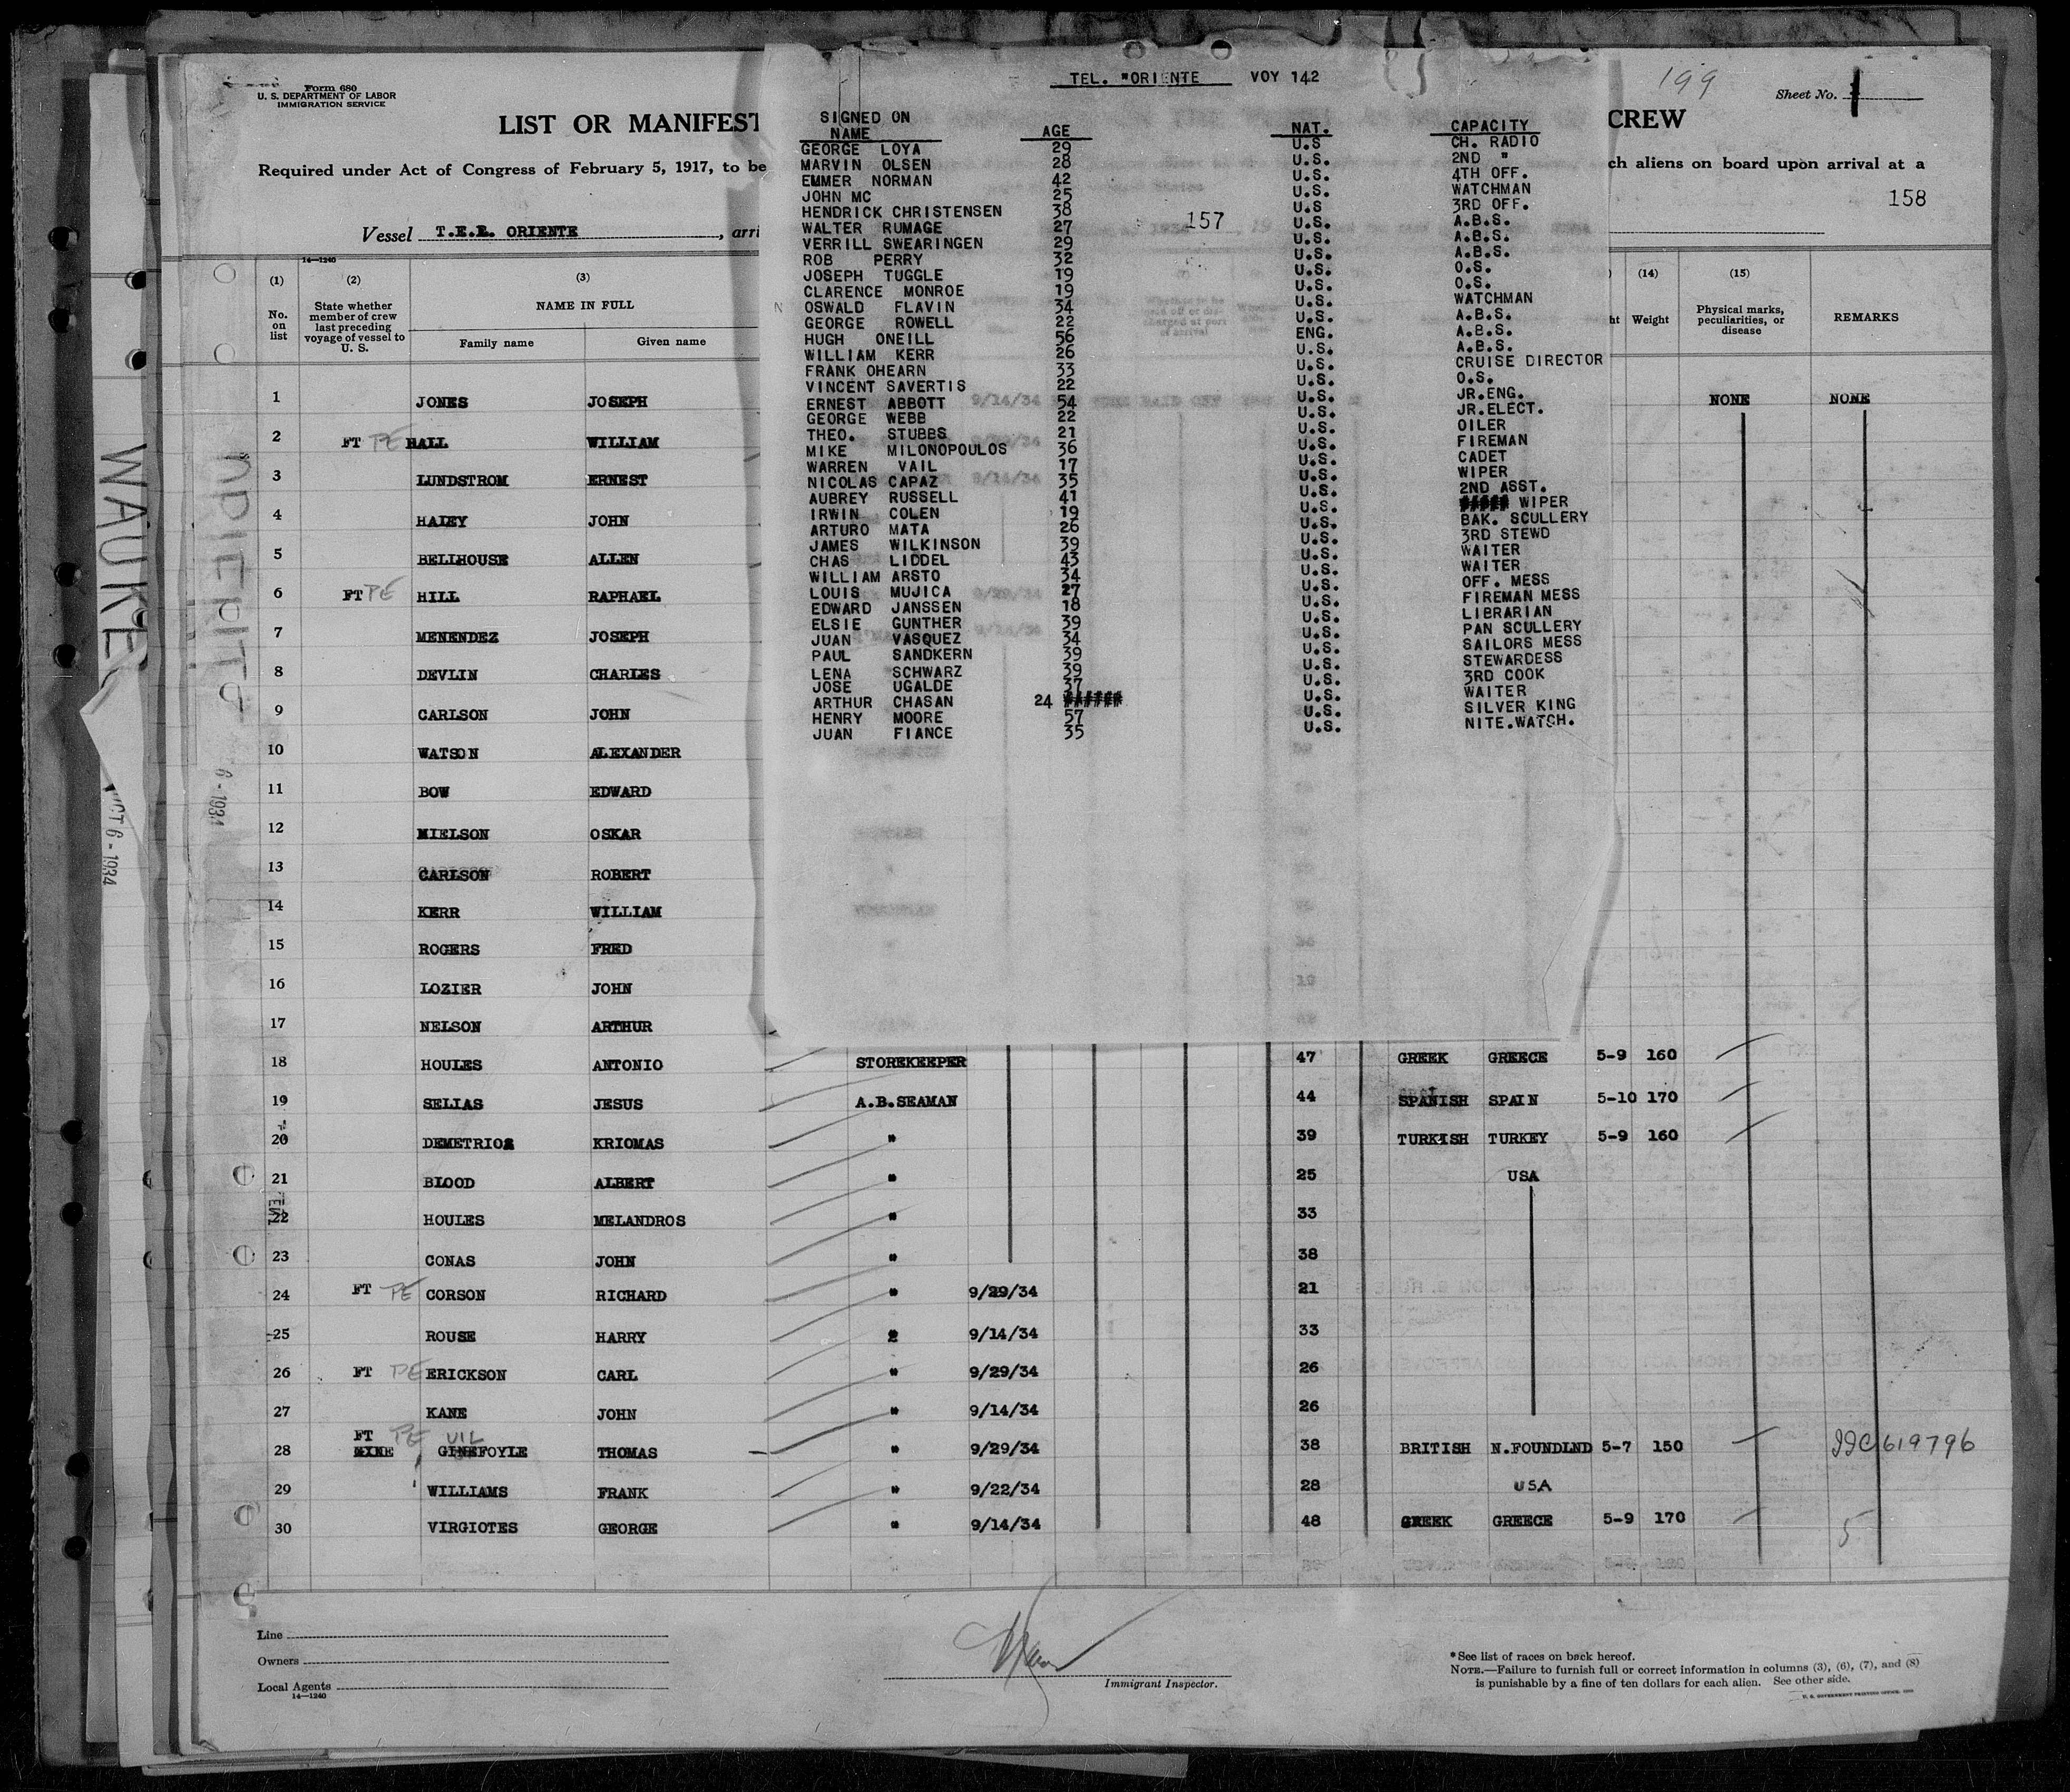 Form 680
U. S. DEPARTMENT OF LABOR
IMMIGRATION SERVICE
LIST OR MANIFEST
CREW
Required under Act of Congress of February 5, 1917, to be
ch aliens on board upon arrival at a
199
Sheet No.
158
Vessel T.E.L. ORIENTE, arri
TEL. "ORIENTE VOY 142
157
SIGNED ON
NAME AGE NAT. CAPACITY
GEORGE LOYA 29 U.S CH. RADIO
MARVIN OLSEN 28 U.S. 2ND "
EMMER NORMAN 42 U.S. 4TH OFF.
JOHN MC 25 U.S. WATCHMAN
HENDRICK CHRISTENSEN 38 U.S 3RD OFF.
WALTER RUMAGE 27 U.S. A.B.S.
VERRILL SWEARINGEN 29 U.S. A.B.S.
ROB PERRY 32 U.S. A.B.S.
JOSEPH TUGGLE 19 U.S. O.S.
CLARENCE MONROE 19 U.S. O.S.
OSWALD FLAVIN 34 U.S. WATCHMAN
GEORGE ROWELL 22 U.S. A.B.S.
HUGH ONEILL 56 ENG. A.B.S.
WILLIAM KERR 26 U.S. A.B.S.
FRANK OHEARN 33 U.S. CRUISE DIRECTOR
VINCENT SAVERTIS 22 U.S. O.S.
ERNEST ABBOTT 54 U.S. JR.ENG.
GEORGE WEBB 22 U.S. JR.ELECT.
THEO. STUBBS 21 U.S. OILER
MIKE MILONOPOULOS 36 U.S. FIREMAN
WARREN VAIL 17 U.S. CADET
NICOLAS CAPAZ 35 U.S. WIPER
AUBREY RUSSELL 41 U.S. 2ND ASST.
IRWIN COLEN 19 U.S. WIPER
ARTURO MATA 26 U.S. BAK. SCULLERY
JAMES WILKINSON 39 U.S. 3RD STEWD
CHAS LIDDEL 43 U.S. WAITER
WILLIAM ARSTO 34 U.S. WAITER
LOUIS MUJICA 27 U.S. OFF. MESS
EDWARD JANSSEN 18 U.S. FIREMAN MESS
ELSIE GUNTHER 39 U.S. LIBRARIAN
JUAN VASQUEZ 34 U.S. PAN SCULLERY
PAUL SANDKERN 39 U.S. SAILORS MESS
LENA SCHWARZ 39 U.S. STEWARDESS
JOSE UGALDE 37 U.S. 3RD COOK
ARTHUR CHASAN 24 U.S. WAITER
HENRY MOORE 57 U.S. SILVER KING
JUAN FIANCE 35 U.S. NITE.WATCH.
14—1240
(1) (2) (3) (14) (15)
No. on list
State whether member of crew last preceding voyage of vessel to U. S.
NAME IN FULL
Family name Given name
ht Weight
Physical marks, peculiarities, or disease
REMARKS
1 JONES JOSEPH NONE NONE
2 FT PE HALL WILLIAM
3 LUNDSTROM ERNEST
4 HALEY JOHN
5 BELLHOUSE ALLEN
6 FT PE HILL RAPHAEL
7 MENENDEZ JOSEPH
8 DEVLIN CHARLES
9 CARLSON JOHN
10 WATSON ALEXANDER
11 BOW EDWARD
12 NIELSON OSKAR
13 CARLSON ROBERT
14 KERR WILLIAM
15 ROGERS FRED
16 LOZIER JOHN
17 NELSON ARTHUR
18 HOULES ANTONIO STOREKEEPER 47 GREEK GREECE 5-9 160
19 SELIAS JESUS A.B.SEAMAN 44 SPANISH SPAIN 5-10 170
20 DEMETRIOS KRIOMAS " 39 TURKISH TURKEY 5-9 160
21 BLOOD ALBERT " 25 USA
22 HOULES MELANDROS " 33
23 CONAS JOHN " 38
24 FT PE CORSON RICHARD " 9/29/34 21
25 ROUSE HARRY " 9/14/34 33
26 FT PE ERICKSON CARL " 9/29/34 26
27 KANE JOHN " 9/14/34 26
28 FT PE UIL FOYLE THOMAS " 9/29/34 38 BRITISH N.FOUNDLND 5-7 150 IIC 619796
29 WILLIAMS FRANK " 9/22/34 28 USA
30 VIRGIOTES GEORGE " 9/14/34 48 GREEK GREECE 5-9 170 5
WAUKE
OCT 6 - 1934
6 - 1934
Line
Owners
Local Agents
14—1240
Immigrant Inspector.
*See list of races on back hereof.
NOTE.—Failure to furnish full or correct information in columns (3), (6), (7), and (8)
is punishable by a fine of ten dollars for each alien. See other side.